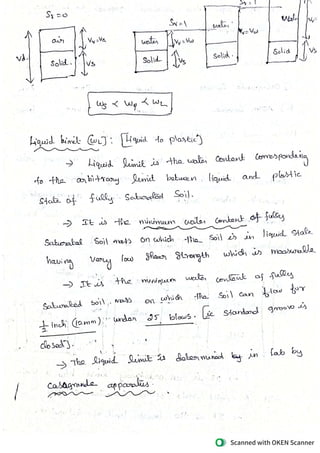 Sr = 0
Sr = 1
Sr = 1
air
Vv = Va
water
Vv = Vw
water
Vv = Vw
water
Vd
Solid
Vs
Solid
Vs
Solid
Solid
Vs
Ws < Wp < WL
Liquid limit (WL) : [Liquid to plastic]
→ Liquid limit is the water content corresponding
to the arbitrary limit between liquid and plastic
state of fully saturated soil.
→ It is the minimum water content of fully
saturated soil mass on which the soil is in liquid state
having very low shear strength which is measurable
→ It is the minimum water content of fully
saturated soil mass on which the soil can flow for
1/2 inch (12mm) under 25 blows. [ie standard groove is
closed].
→ The liquid limit is determined by in lab by
casagrande apparatus.
Scanned with OKEN Scanner